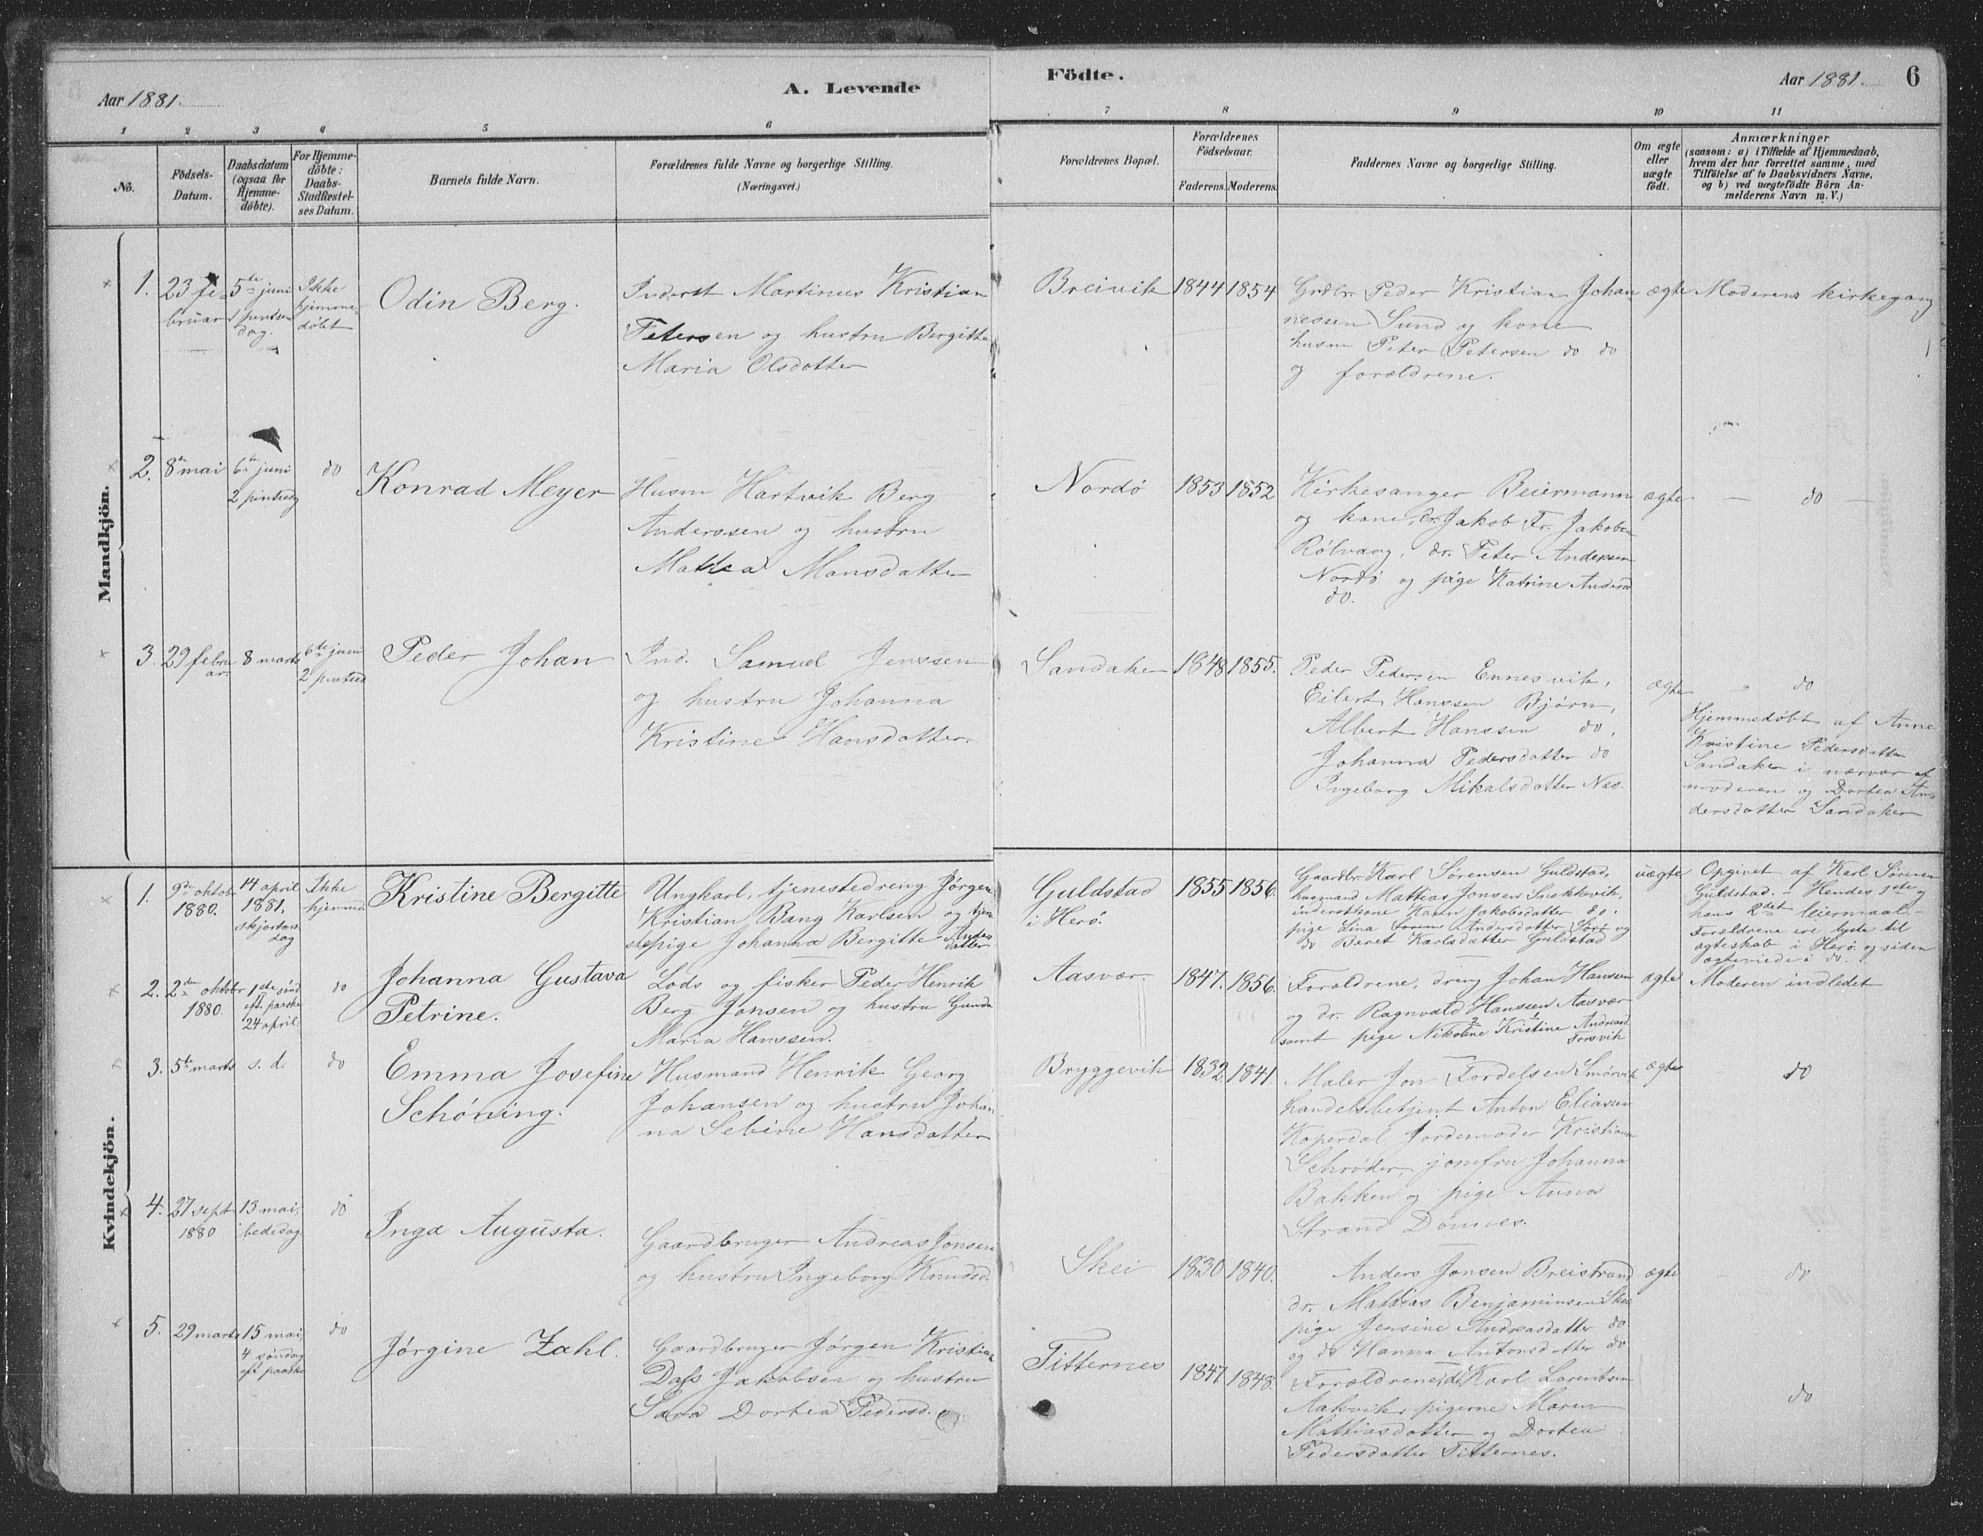 Aar 1881.
A. Levende
Födte.
Aar 1881.
6
1 2 3 4 5 6 7 8 9 10 11
No.
Födsels-
Datum.
Daabsdatum
(ogsaa for
Hjemme-
döbte).
For Hjemme-
döbte:
Daabs-
Stadfæstel-
ses Datum.
Barnets fulde Navn.
Forældrenes fulde Navne og borgerlige Stilling.
(Næringsvei.)
Forældrenes Bopæl.
Forældrenes
Födselsaar.
Faderens. Moderens.
Faddernes Navne og borgerlige Stilling.
Om ægte
eller
uægte
födt.
Anmærkninger
(saasom: a) i Tilfælde af Hjemmedaab,
hvem der har forrettet samme, med
Tilföielse af to Daabsvidners Navne,
og b) ved uægtefödte Börn An-
melderens Navn m. V.)
Mandkjön.
1.
23 fe-
bruar
5te juni
1 pintse
dag.
Ikke
hjemme-
døbt
Odin Berg.
Inderst Martinus Kristian
Petersen og hustru Bergitte
Maria Olsdatter
Breivik
1844 1854
Grdbr. Peder Kristian Johan
nessen Sund og kone
husm Peter Petersen do do
og forældrene.
ægte
Moderens kirkegang
2.
8de mai
6te juni
2 pintsedg
do
Konrad Meyer
Husm Hartvik Berg
Anderssen og hustru
Mattea Monsdatter
Nordø
1853 1852
Kirkesanger Beiermann
og kone, dr. Jakob Fr. Jakobsen
Rölvaag, dr. Peter Andersen
Nordö og pige Katrine Andersd
do.
ægte
— do —
3.
29 febru
ar.
8 marts
6te juni
2 pintsed
Peder Johan
Ind. Samuel Jenssen
og hustru Johanna
Kristine Hansdatter.
Sandaker
1848 1855.
Peder Pedersen Ennesvik,
Eilert Hanssen Bjørn,
Albert Hanssen do,
Johanna Pedersdatter do
Ingeborg Mikalsdatter Næs.
ægte
— do
Hjemmedøbt af Anne
Kristine Pedersdatter
Sandaker i nærvær af
moderen og Dortea An-
dersdatter Sandaker
Kvindekjön.
1.
9de oktob
1880.
14 april
1881,
skjærtors
dag
Ikke
hjemmed
Kristine Bergitte
Ungkarl, tjenestedreng Jørgen
Kristian Bang Karlsen og tjene
stepige Johanna Bergitte Anders
datter
Guldstad
i Herö.
1855 1856.
Gaardbr Karl Sörensen Guldstad,
husmand Mattias Jonsen
inderstkone Karen Jakobsdatter do.
pige Lina Andersdatter og
do Beret Karlsdatter Guldstad
uægte
Opgivet af Karl Sörensen
Guldstad. – Hendes 1ste og
hans 2det leiermaal. –
Forældrene ere lyste til
ægteskab i Herø og siden
ægteviede i do.
2.
2den oktobr
1880.
1ste sönd
eft. paaske
24 april.
do
Johanna Gustava
Petrine.
Lods og fisker Peder Henrik
Berg Jonsen og hustru Gunda
Maria Hanssen.
Aasvær.
1847. 1856.
Forældrene, dreng Johan Hansen
og dr. Ragnvald Hanssen Aasvær
samt pige Nikoline Kristine Andreasd
Forsvik
ægte
Moderen indledet
3.
5te marts
s. d.
do
Emma Josefine
Schöning.
Husmand Henrik Georg
Johansen og hustru Johan
na Sebine Hansdatter
Bryggevik
1832. 1841
Maler Jon Fordelsen Smørvik
handelsbetjent Anton Eliassen
Koperdal Jordemoder Kristiane
Schrøder, jomfru Johanna
Bakken og pige Anna
Strand Dönnes.
ægte
do
4.
27 sept
1880
13 mai,
bededag.
do
Inga Augusta.
Gaardbruger Andreas Jonsen
og hustru Ingeborg Knudsd.
Skei
1830 1840.
Anders Jonsen Breistrand
dr. Mattias Benjaminsen Skei
pige Jensine Andreasdatter do
og do Hanna Antonsdatter do
ægte
— do
5.
29 marts
15 mai
4 søndag
eft paaske
do
Jørgine Zahl.
Gaardbruger Jørgen Kristian
Dass Jakobsen og hustru
Sara Dortea Pedersd.
Titternes
1847 1848.
Forældrene, Karl Larentsen
Aakvik, pigerne Maren
Mattiasdatter og Dortea
Pedersdatter Titternes.
do